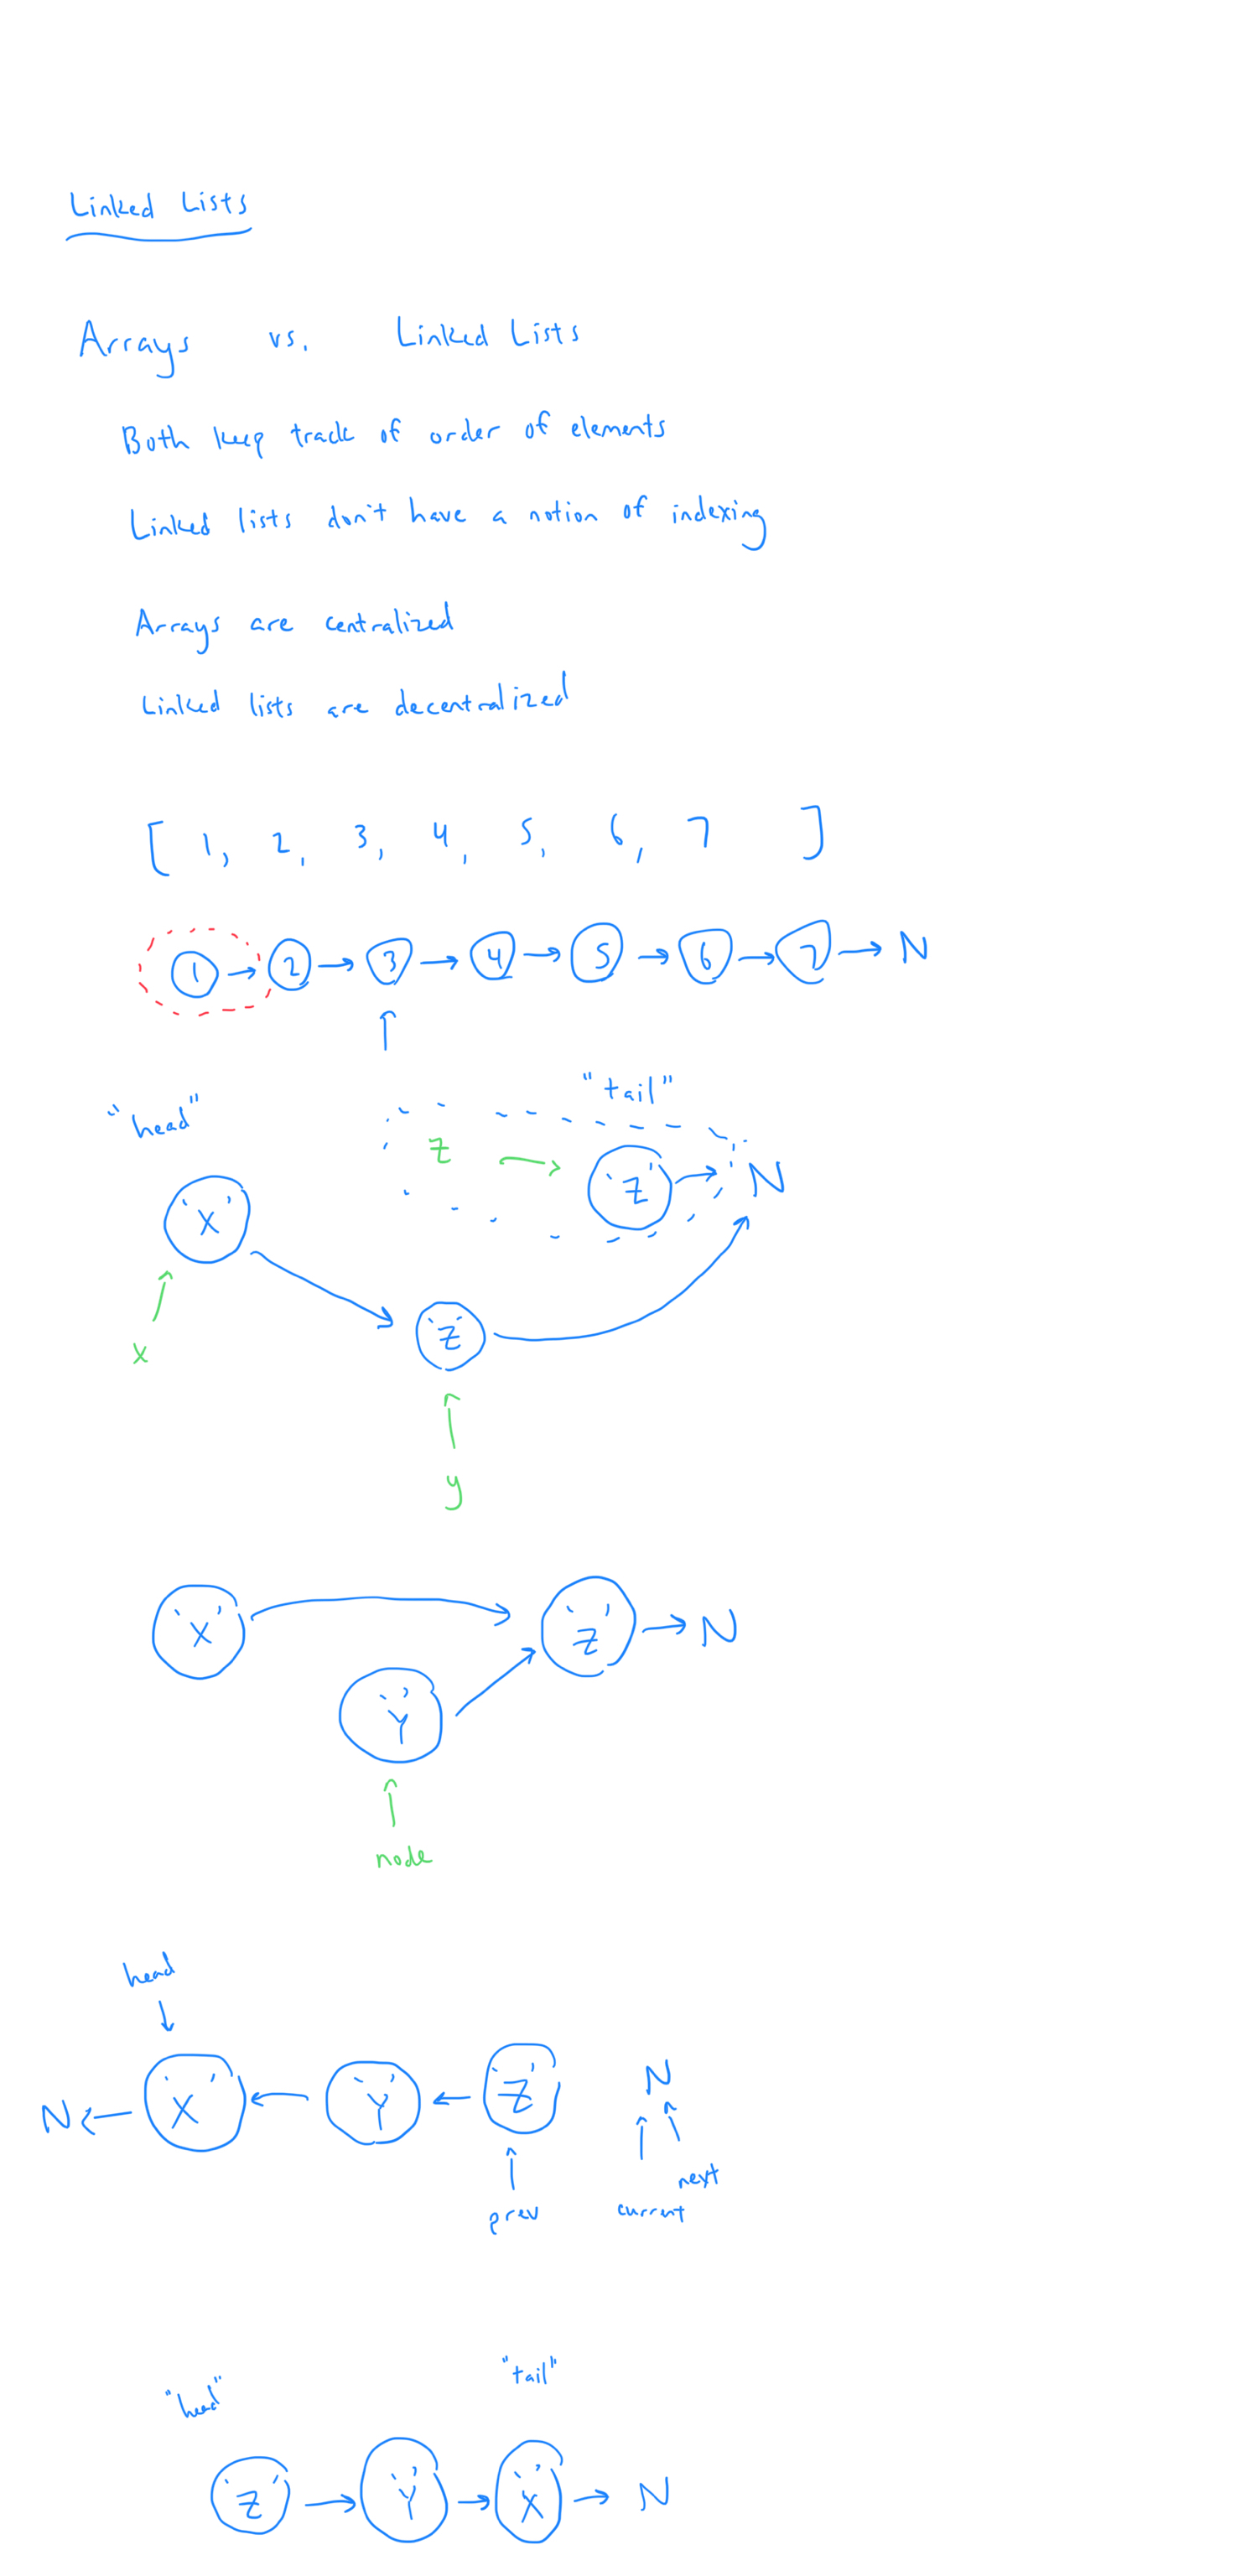 Linked Lists
Arrays vs. Linked Lists
Both keep track of order of elements
Linked lists don't have a notion of indexing
Arrays are centralized
Linked lists are decentralized
[ 1, 2, 3, 4, 5, 6, 7 ]
1 → 2 → 3 → 4 → 5 → 6 → 7 → N
"head" "tail"
z → 'Z' → N
'X'
'Z'
x
y
'X' 'Z' → N
'Y'
node
head
N ← 'X' ← 'Y' ← 'Z' N
prev current next
"head" "tail"
'Z' → 'Y' → 'X' → N